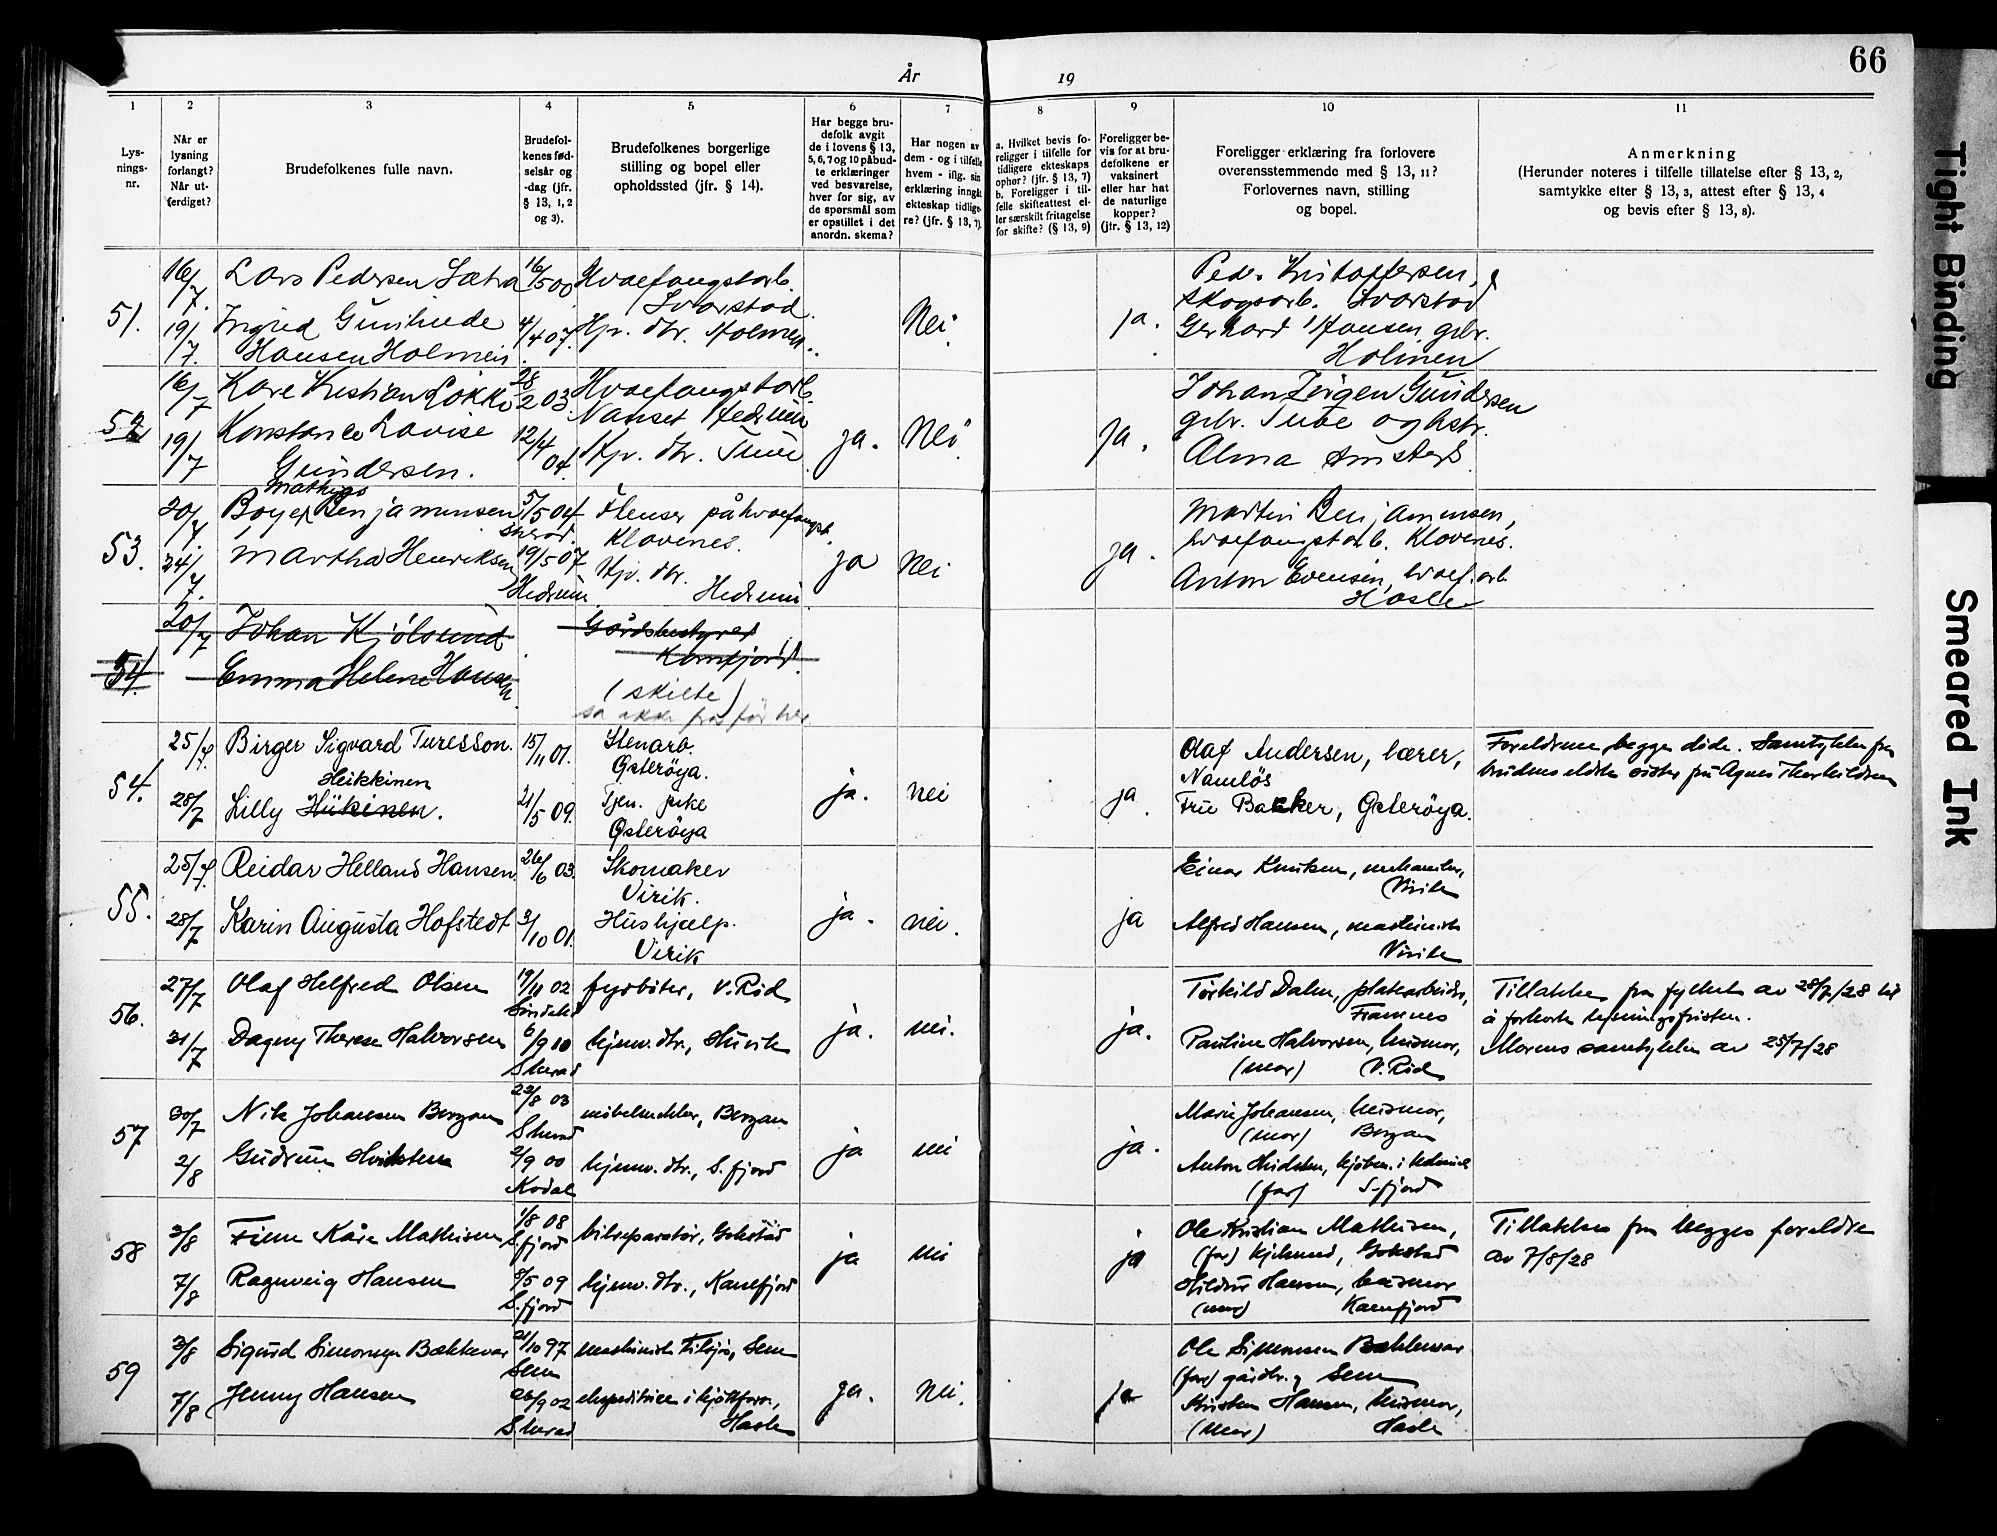 66
År
19
1
2
3
4
5
6
7
8
9
10
11
Lys-
nings-
nr.
Når er
lysning
forlangt?
Når ut-
færdiget?
Brudefolkenes fulle navn.
Brudefol-
kenes fød-
selsår og
-dag (jfr.
§ 13, 1, 2
og 3).
Brudefolkenes borgerlige
stilling og bopel eller
opholdssted (jfr. § 14).
Har begge bru-
defolk avgit
de i lovens § 13,
5, 6, 7 og 10 påbud-
te erklæringer
ved besvarelse,
hver for sig, av
de spørsmål som
er opstillet i det
anordn. skema?
Har nogen av
dem - og i tilfelle
hvem - iflg. sin
erklæring inngåt
ekteskap tidlige-
re? (jfr. § 13, 7)
a. Hvilket bevis fo-
religger i tilfelle for
tidligere ekteskaps
ophør? (jfr. § 13, 7)
b. Foreligger i til-
felle skifteattest el-
ler særskilt fritagelse
for skifte? (§ 13, 9)
Foreligger be-
vis for at bru-
defolkene er
vaksinert
eller har hat
de naturlige
kopper?
(jfr. § 13, 12)
Foreligger erklæring fra forlovere
overensstemmende med § 13, 11?
Forlovernes navn, stilling
og bopel.
Anmerkning
(Herunder noteres i tilfelle tillatelse efter § 13, 2,
samtykke efter § 13, 3, attest efter § 13, 4
og bevis efter § 13, 8).
51.
16/7.
19/7.
Lars Pedersen Sætra
Ingrid
Hansen Holmen.
16/5 00
4/4 07.
Hvalfangstarb.
Svarstad.
Hjv. dtr. Holmen.
Nei.
ja.
Peder Kristoffersen,
skogsarb. Svarstad
Gerhard Hansen, gbr.
Holmen
52
16/7
19/7
Kåre Kristian Løkke
Konstance Lovise
Gundersen.
28/2 03.
12/4 04.
Hvalfangstarb.
Nanset Hedrum
Hjv. dtr.
ja.
Nei.
ja.
Johan Jørgen Gundersen
gbr.
Alma
53.
20/7
24/7.
Mathias
Boye Benjaminsen
Martha Henriksen
5/5 04
19/5 07
Hedrum.
Flenser på hvalfangst.
Klavenes.
Hjv. dtr.
Hedrum.
ja
Nei
ja.
Martin Benjaminsen,
hvalfangstarb. Klavenes.
Anton Evensen, hvalf.arb.
Hasle
54.
20/7
Johan Kjølsund
Emma Helene Hansen
Gårdsbestyrer
Kamfjord.
(skilte)
54.
25/7.
28/7
Birger Sigvard Turesson.
Heikkinen
Lilly Hükinen.
15/11 01.
21/5 09.
Stenarb.
Østerøya.
Tjen. pike
Østerøya
ja.
nei
ja.
Olaf Andersen, lærer,
Namløs
Fru Backer, Østerøya.
Foreldrene begge døde. Samtykke fra
brudens eldste søster fru Agnes Thorkildsen
55.
25/7.
28/7
Reidar Helland Hansen.
Karin Augusta Hofstedt
26/6 03.
3/10 01.
Skomaker
Virik.
Hushjælp.
Virik
ja.
nei.
ja
Einar Knutsen, mekaniker,
Virik
Alfred Hansen, maskinist
Virik
56.
27/7
31/7
Olaf Helfred Olsen
Dagny Therese Halvorsen
19/11 02
6/9 10
Skerad
fyrbøter, V. Rød
hjemv. dtr., Huvik
ja.
nei.
ja.
Torkild Dalen, platearbeider,
Framnes
Pauline Halvorsen, husmor,
(mor) V. Rød
Tillatelse fra fylket av 28/7/28 til
å forkorte lysningsfristen.
Morens samtykke av 25/7/28
57
30/7
2/8
Nils Johansen Bergan
Gudrun Hvidsten
23/8 03
Skerad
2/9 00
Kodal
møbelsnekker, Bergan
hjemv. dtr., S. fjord
ja
nei
ja.
Marie Johansen, husmor,
(mor) Bergan
Anton Hvidsten,
(far) S-fjord
58
3/8
7/8
Finn Kåre Mathisen
Ragnveig Hansen
1/8 08
S. fjord
8/5 09
S. fjord
bilreparatør, Gokstad
hjemv. dtr., Kamfjord
ja
nei
ja
Ole Kristian Mathisen,
(far) Gokstad
Hildur Hansen, husmor
(mor) Kamfjord
Tillatelse fra begges foreldre
av 7/8/28
59
3/8
7/8
Sigurd Simonsen Bækkevar
Jenny Hansen
21/10 97
Sem
26/9 02
Skerad
maskinist Sem
ekspeditrice i kjøttforr.,
Hasle
ja.
nei.
ja
Ole Simonsen Bækkevar
(far) gårdbr., Sem
Kristine Hansen, husmor,
(mor) Hasle
Tight Binding
Smeared Ink